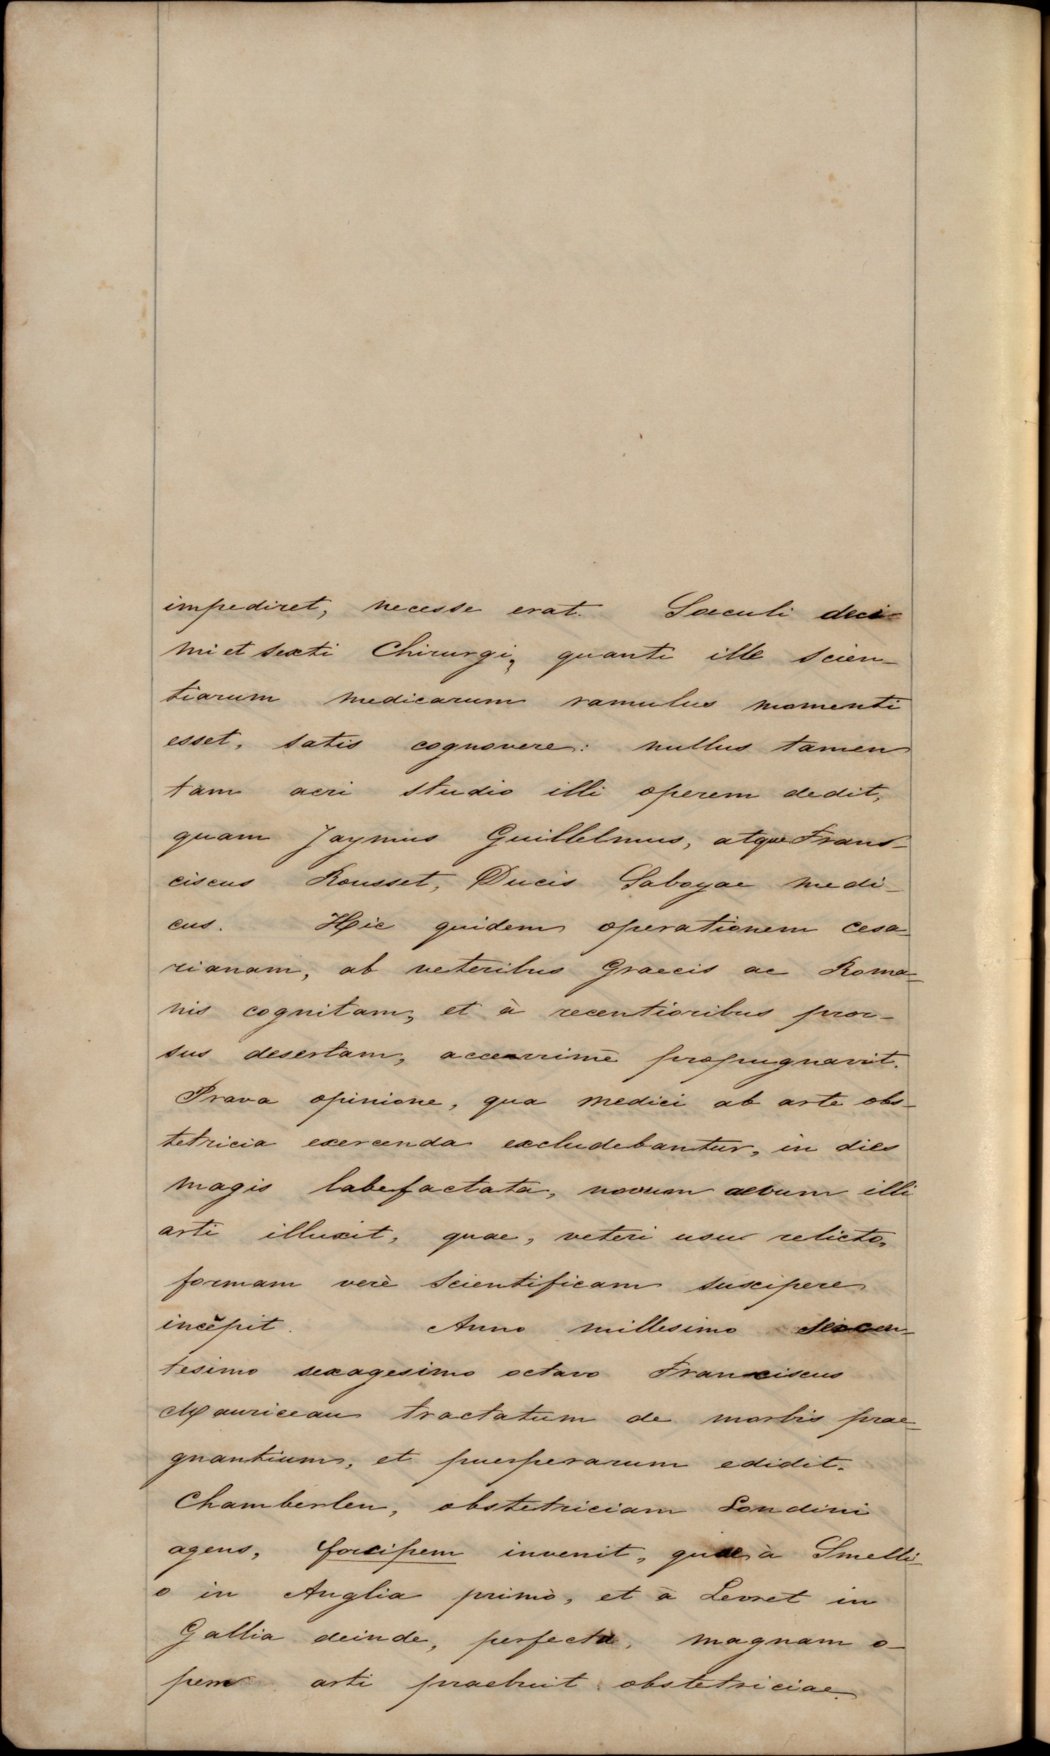 impediret, necesse erat. Saeculi deci-
mi et sexti Chirurgi, quanti ille scien-
tiarum medicarum ramulus momenti
esset, satis cognovere: nullus tamen
tam acri studio illi operem dedit,
quam Jaymus Guillelmus, atque Frans-
ciscus Rousset, Ducis Saboyae medi-
cus. Hic quidem operationem cesa-
rianam, ab veteribus Graecis ac Roma-
nis cognitam, et à recentioribus pror-
sus desertam, accerrimè propugnavit.
Prava opinione, qua medici ab arte obs-
tetricia exercenda excludebantur, in dies
magis labefactata, novum aevum illi
arti illuxit, quae, veteri usu relicto,
formam verè scientificam suscipere
incêpit. Anno millesimo sexcen-
tesimo sexagesimo octavo Franciscus
Mauriceau tractatum de morbis prae-
gnantium, et puerperarum edidit.
Chamberlen, obstetriciam Londini
agens, forcipem invenit, quae à Smelli-
o in Anglia primò, et à Levret in
Gallia deinde, perfecta, magnam o-
pem arti praebuit obstetriciae.